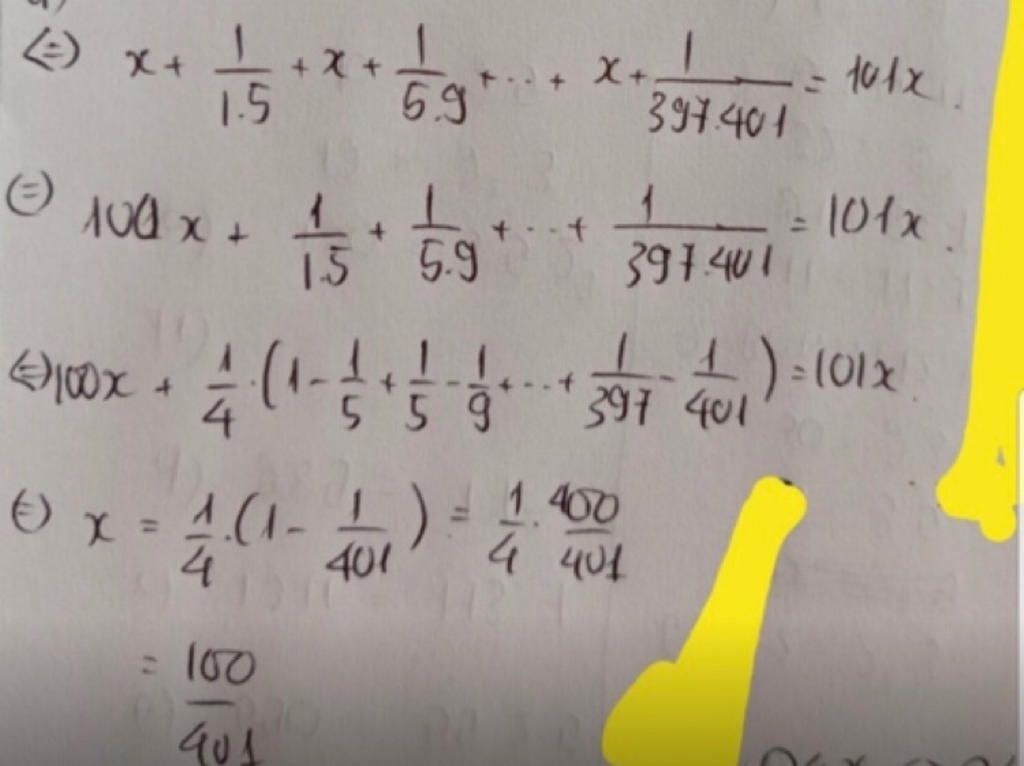 (=) x + 1/1.5 + x + 1/5.9 + ... + x + 1/397.401 = 101x.
(=) 100x + 1/1.5 + 1/5.9 + ... + 1/397.401 = 101x.
(=) 100x + 1/4.(1 - 1/5 + 1/5 - 1/9 + ... + 1/397 - 1/401) = 101x.
(=) x = 1/4.(1 - 1/401) = 1/4 . 400/401
= 100/401